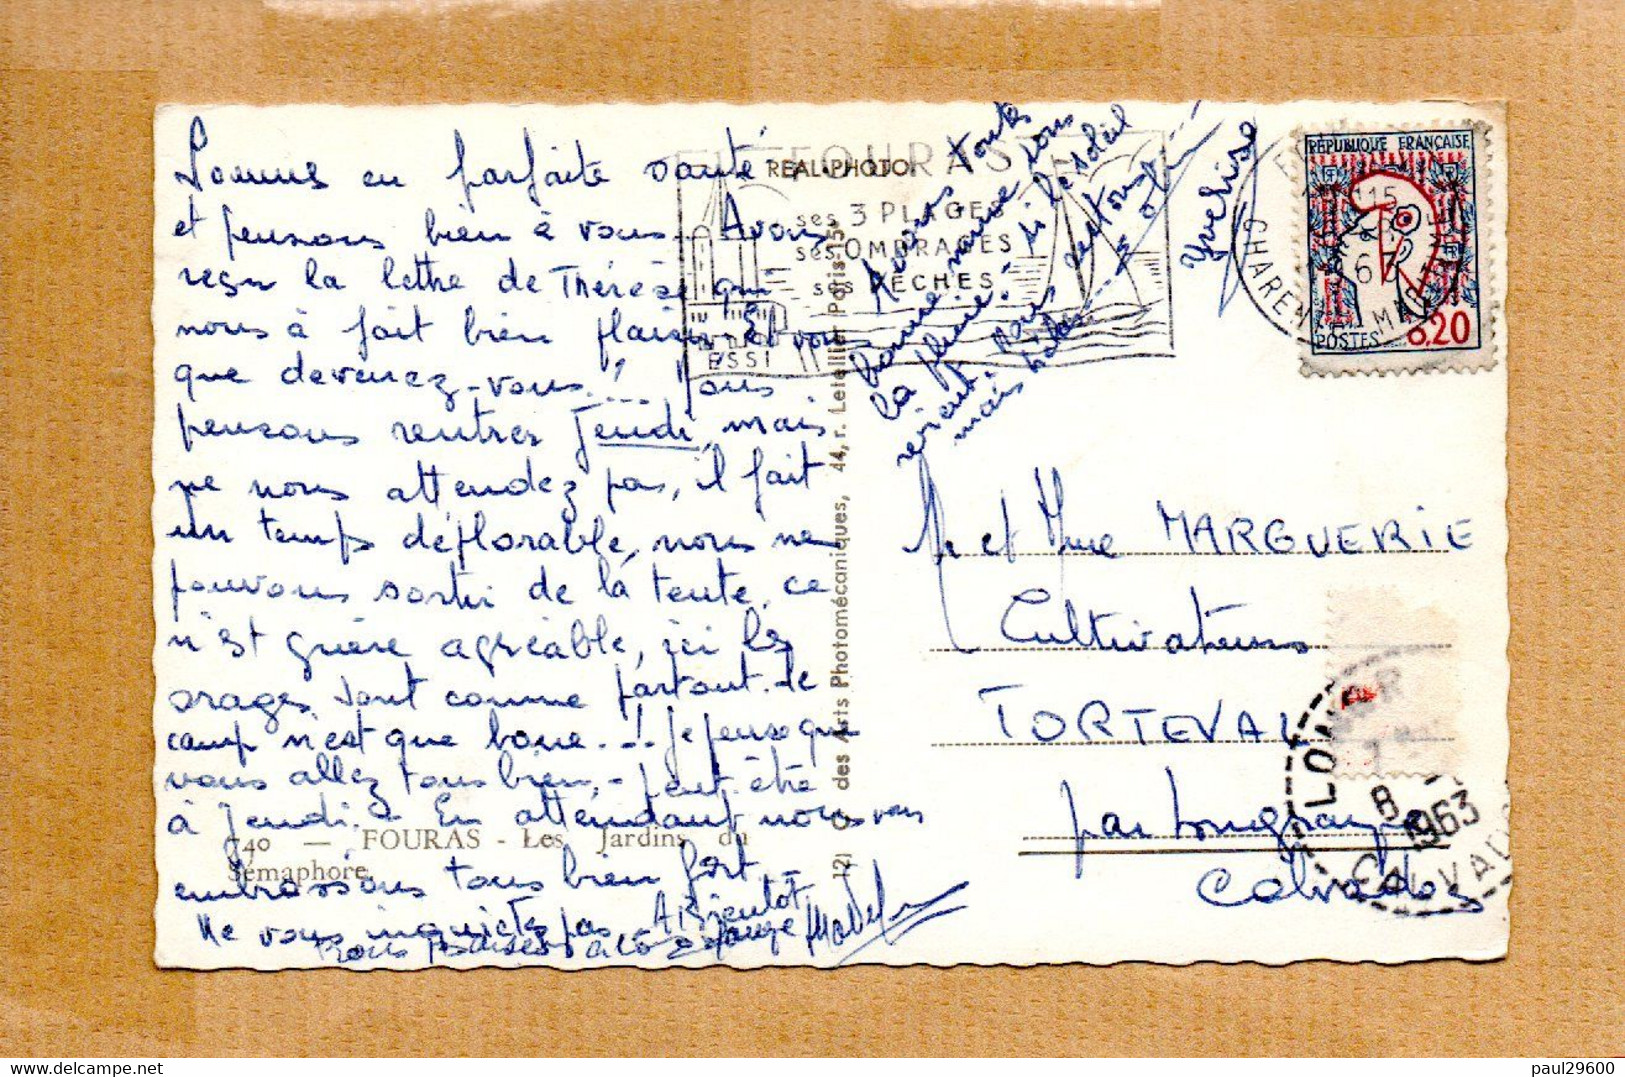 Sommes en parfaite santé
et pensons bien à vous. Avons
reçu la lettre de Thérèse qui
nous à fait bien plaisir. Et vous
que devenez-vous..! Nous
pensons rentrer Jeudi, mais
ne nous attendez pas, il fait
un temps déplorable, nous ne
pouvons sortir de la tente, ce
n'est guère agréable, ici les
orages sont comme partout. le
camp n'est que boue..! Je pense que
vous allez tous bien, - peut être
à Jeudi. En attendant nous vous
embrassons tous bien fort.
Ne vous inquietez pas. A Bientôt
Bons baisers à
740 — FOURAS - Les Jardins du
Sémaphore
REAL-PHOTO
121 des Arts Photomécaniques, 44, r. Letellier Paris-15
FOURAS
ses 3 PLAGES
ses OMBRAGES
ses PÊCHES
ESSI
Avons toute
bonne mine sous
la pluie. si le soleil
revient. Nous
mais hélas
Yveline
RÉPUBLIQUE FRANÇAISE
POSTES 0,20
CHARENTE MARITIME
15
M et Mme MARGUERIE
Cultivateurs
TORTEVAL
par Longraye
Calvados
8
1963
CALVADOS
paul29600